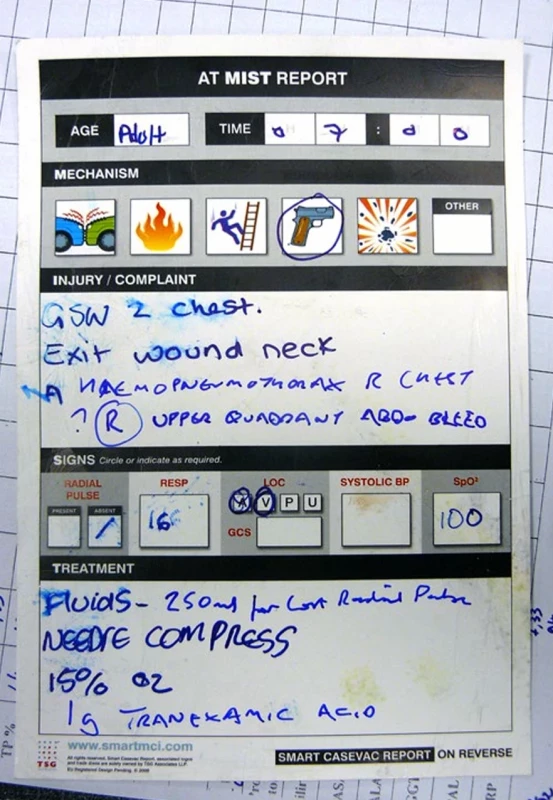 AT MIST REPORT
AGE Adult TIME 0 7 : 0 0
MECHANISM
OTHER
INJURY / COMPLAINT
GSW 2 chest.
Exit wound neck
HAEMOPNEUMOTHORAX R CHEST
? R UPPER QUADRANT ABDO BLEED
SIGNS Circle or indicate as required.
RADIAL PULSE RESP LOC SYSTOLIC BP SpO²
PRESENT ABSENT / 16 A V P U 100
GCS
TREATMENT
Fluids - 250ml for Lost Radial Pulse
NEEDLE COMPRESS
15% O2
1g TRANEXAMIC ACID
www.smartmci.com
TSG
All rights reserved. Smart Casevac Report, associated logos
and trade dress are solely owned by TSG Associates LLP.
EU Registered Design Pending. © 2008
SMART CASEVAC REPORT ON REVERSE
TP %